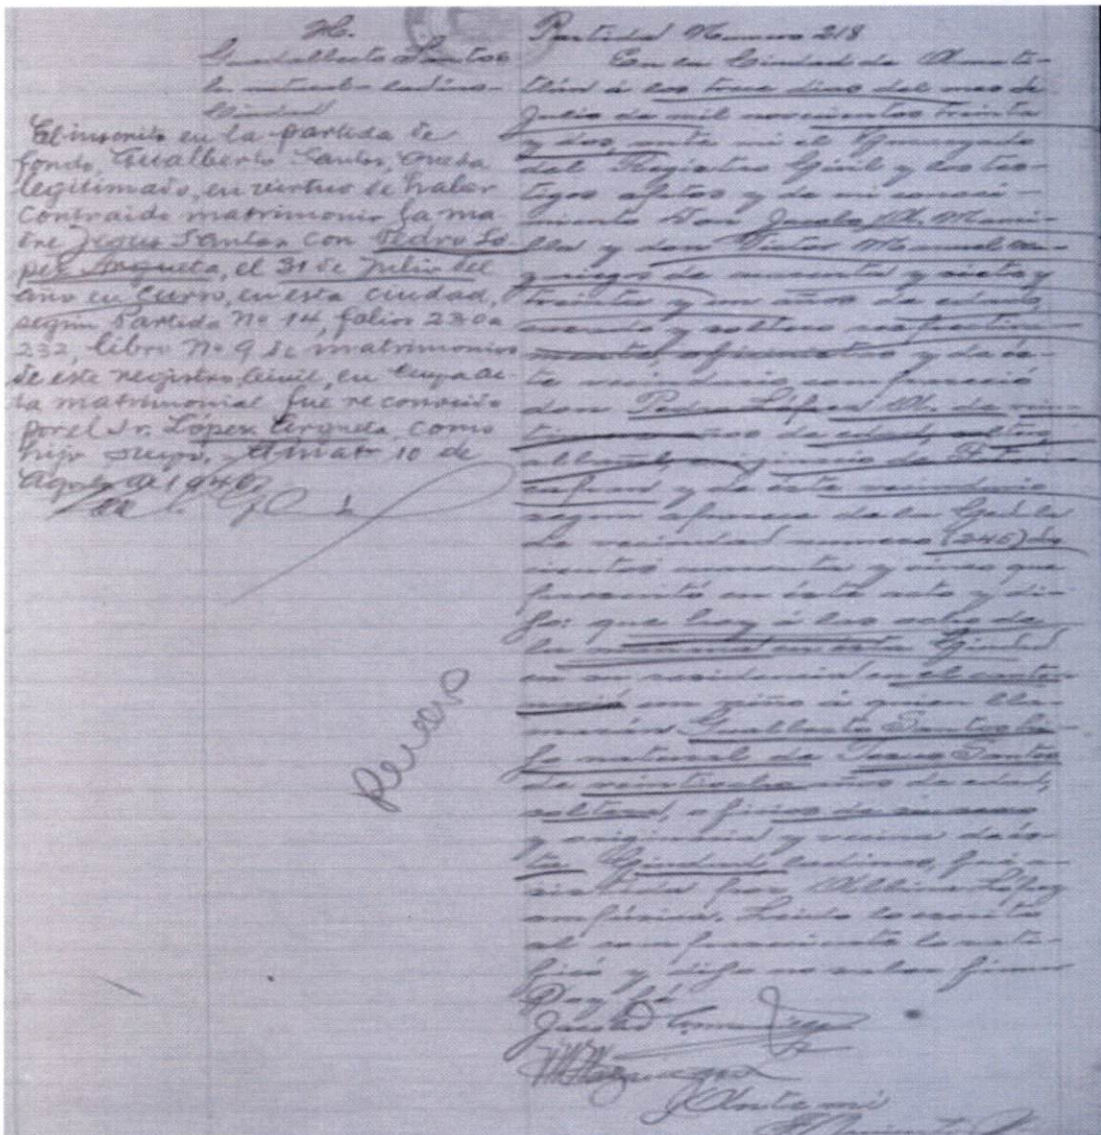 H.
Gualberto Santos
hn. natural ladino
Ciudad
El inscrito en la partida de
fondo, Gualberto Santos, queda
legitimado, en virtud de haber
contraido matrimonio la ma-
dre Jesus Santos con Pedro Ló
pez Argueta, el 31 de Julio del
año en curso, en esta ciudad,
según Partida No 14, folios 230 a
232, libro No 9 de matrimonios
de este Registro Civil, en cuya ac-
ta matrimonial fue reconocido
por el Sr. López Argueta, como
hijo suyo. Amat. 10 de
Agosto de 1940
Partida Numero 218
En la Ciudad de Amati-
tlán á los trece dias del mes de
Julio de mil novecientos treinta
y dos, ante mi el Encargado
del Registro Civil y los tes-
tigos aptos y de mi conoci-
miento don Jacobo A.
y don Victor Manuel
de cuarenta y siete y
treinta y un años de edad,
casado y soltero respectiva-
mente, oficinistas y de és-
te vecindario, compareció
don Pedro López A. de
años de edad, soltero,
albañil, originario de
y de éste vecindario
segun aparece de la Cédula
de vecindad numero (245) dos
cientos cuarenta y cinco que
presentó en éste acto y di-
jo: que hoy á las ocho de
la mañana en esta Ciudad
en su residencia en el canton
nació un niño á quien lla-
marán Gualberto Santos hi-
jo natural de Jesus Santos
de veintiocho años de edad,
soltera, oficios de su sexo
y originaria y vecina de és-
ta Ciudad ladinos, fué a-
sistida por Albina López
empírica. Leido lo escrito
al compareciente lo rati-
ficó y dijo no saber firmar
Doy fé
Ante mi